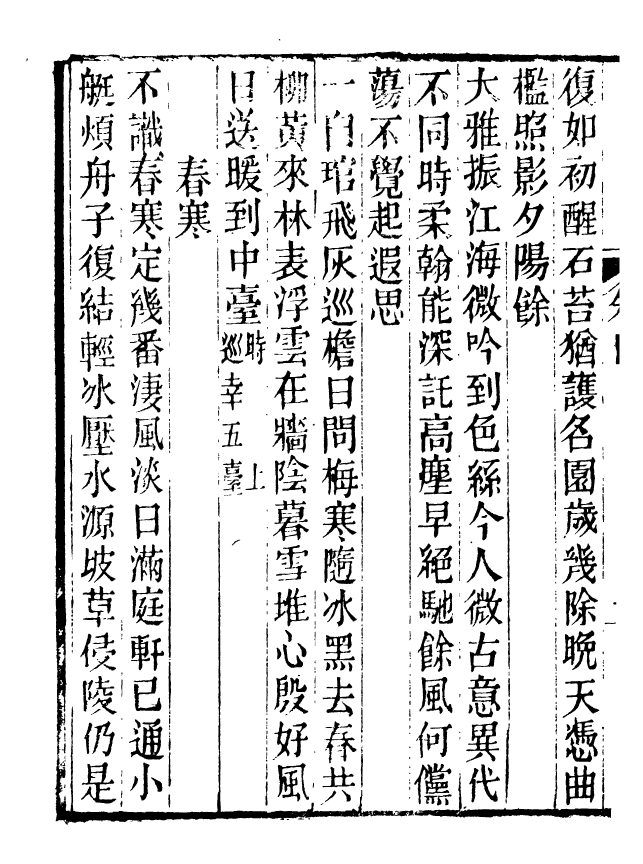 復如初醒石苔猶護名園歲幾除晚天憑曲
檻照影夕陽餘
大雅振江海微吟到色絲今人微古意異代
不同時柔翰能深託高塵早絕馳餘風何儻
蕩不覺起遐思
一白琯飛灰巡檐日問梅寒隨冰黑去春共
柳黃來林表浮雲在牆陰暮雪堆心殷好風
日送暖到中臺時上巡幸五臺
春寒
不識春寒定幾番淒風淡日滿庭軒已通小
艇煩舟子復結輕冰壓水源坡草侵陵仍是